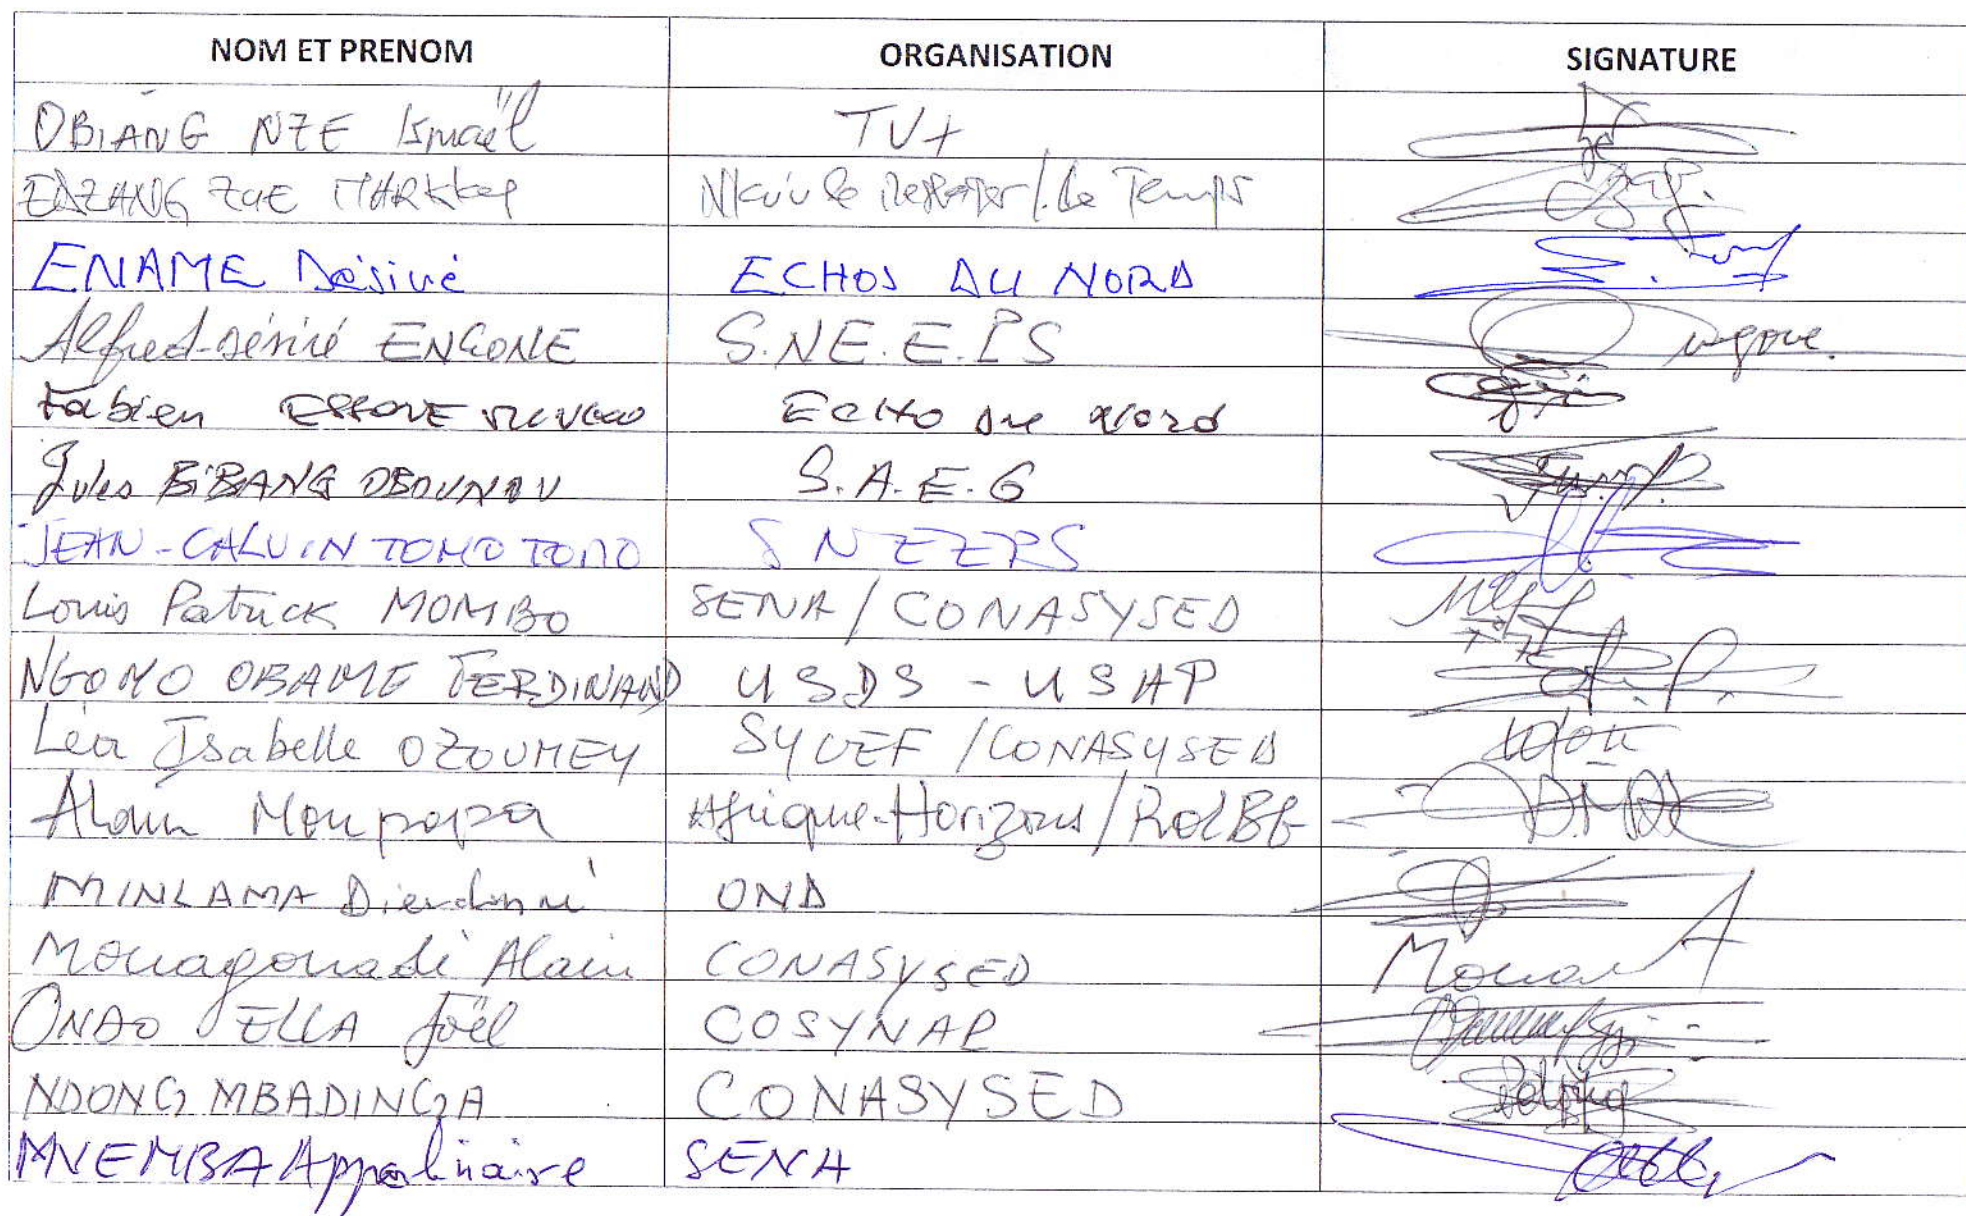 NOM ET PRENOM ORGANISATION SIGNATURE
OBIANG NZE Ismaël TV+
ZUE Le Temps
ENAME Désiré ECHOS DU NORD
Alfred-Désiré ENGONE S.NE.E.PS
Fabien ESSONE Echo du Nord
Jules BIBANG OBOUNOU S.A.E.G
JEAN-CALVIN TOMO TOMO SNEEPS
Louis Patrick MOMBO SENA / CONASYSED
NGOMO OBAME FERDINAND USDS - USAP
Léa Isabelle OZOUMEY SYVEF / CONASYSED
Alain Moupopa Afrique-Horizons /
MINLAMA Dieudonné OND
Mouagouadi Alain CONASYSED
ONDO ELLA Joël COSYNAP
NDONG MBADINGA CONASYSED
MVEMBA Appolinaire SENA